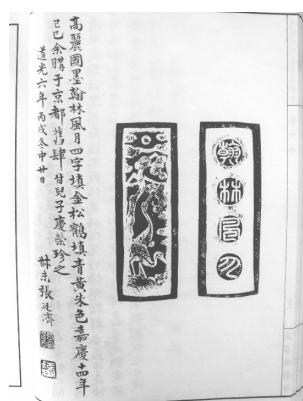 翰林風月
高麗國墨翰林風月四字填金松鶴填青黃朱色嘉慶十四年
己巳余購于京都舊肆付兒子慶榮珍之
道光六年丙戌冬中廿日
叔未張廷濟